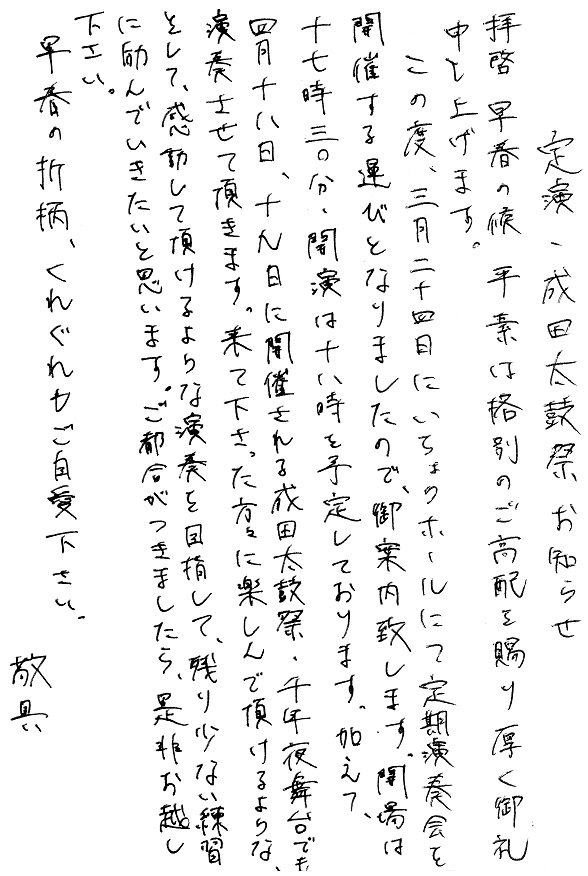 定演、成田太鼓祭、お知らせ
拝啓 早春の候 平素は格別のご高配を賜り厚く御礼
申し上げます。
この度、三月二十四日にいちょうホールにて定期演奏会を
開催する運びとなりましたので、御案内致します。開場は
十七時三〇分、開演は十八時を予定しております。加えて、
四月十八日、十九日に開催される成田太鼓祭、千年夜舞台でも
演奏させて頂きます。来て下さった方々に楽しんで頂けるような、
そして、感動して頂けるような演奏を目指して、残り少ない練習
に励んでいきたいと思います。ご都合がつきましたら、是非お越し
下さい。
早春の折柄、くれぐれもご自愛下さい。
敬具